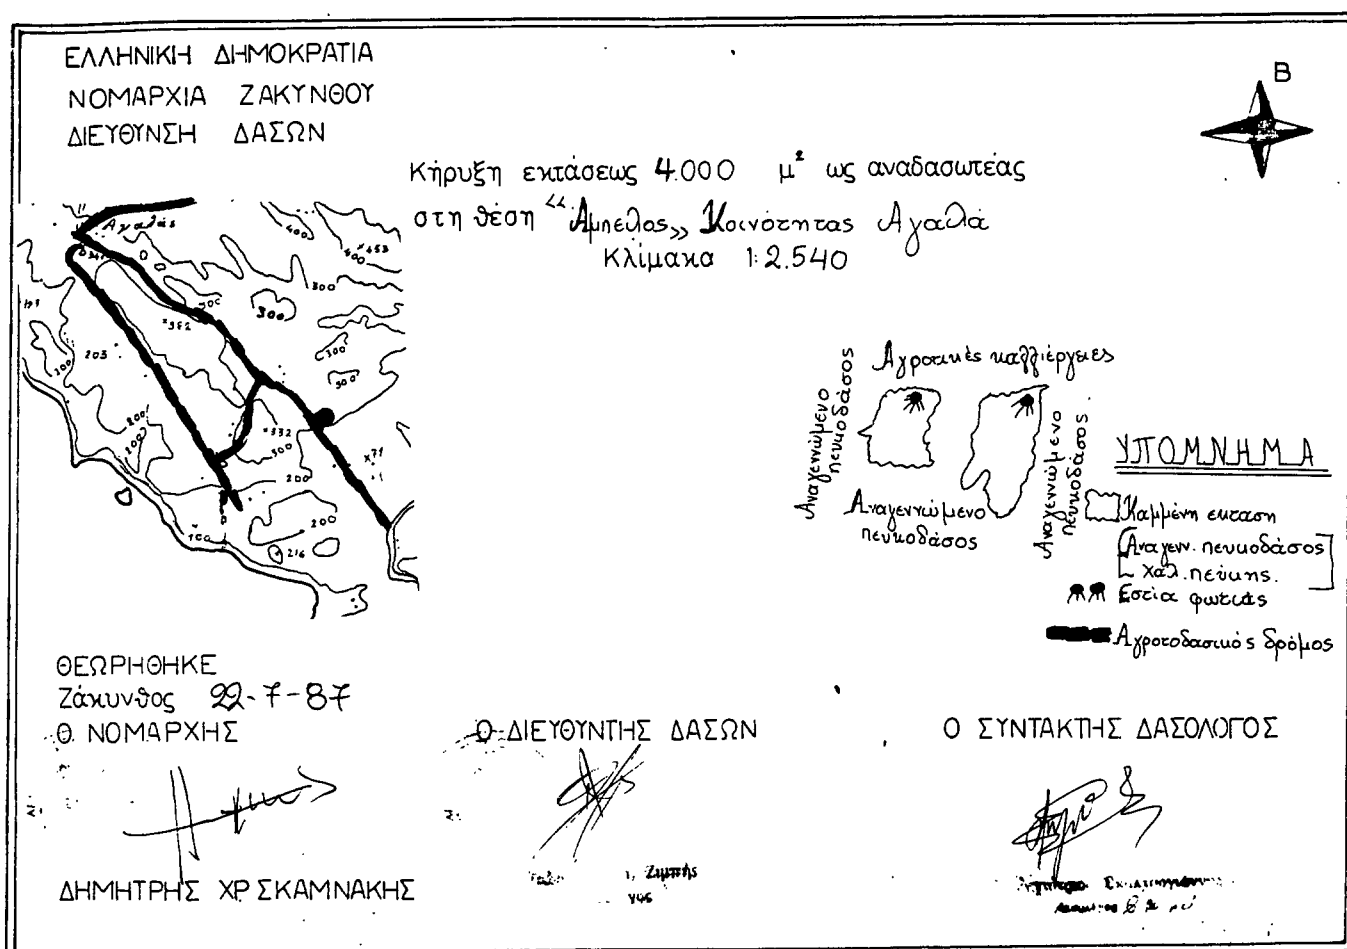 ΕΛΛΗΝΙΚΗ ΔΗΜΟΚΡΑΤΙΑ
ΝΟΜΑΡΧΙΑ ΖΑΚΥΝΘΟΥ
ΔΙΕΥΘΥΝΣΗ ΔΑΣΩΝ
Β
Κήρυξη εκτάσεως 4.000 μ² ως αναδασωτέας
στη θέση "Άμπελος" Κοινότητας Αγαλά
Κλίμακα 1:2.540
Αγαλάς
400
×453
400
300
300
300
×382
203
300
300
300
200
200
×332
300
200
×71
200
100
216
Αγροτικές καλλιέργειες
Αναγεννώμενο
πευκοδάσος
Αναγεννώμενο
πευκοδάσος
Αναγεννώμενο
πευκοδάσος
ΥΠΟΜΝΗΜΑ
Καμμένη εκταση
Αναγενν. πευκοδάσος
χαλ. πεύκης.
Εστία φωτιάς
Αγροτοδασικός δρόμος
ΘΕΩΡΗΘΗΚΕ
Ζάκυνθος 22-7-87
Ο ΝΟΜΑΡΧΗΣ
Ο ΔΙΕΥΘΥΝΤΗΣ ΔΑΣΩΝ
Ο ΣΥΝΤΑΚΤΗΣ ΔΑΣΟΛΟΓΟΣ
ΔΗΜΗΤΡΗΣ ΧΡ ΣΚΑΜΝΑΚΗΣ